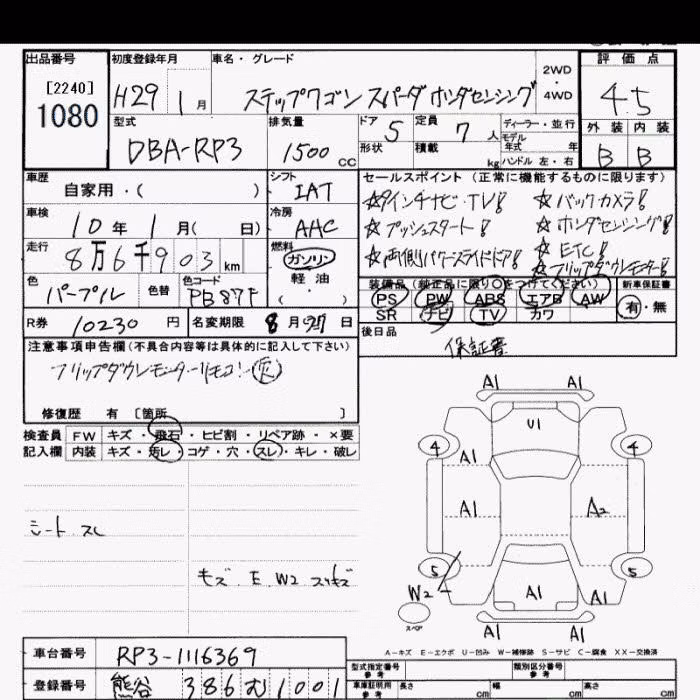 出品番号 初度登録年月 車名・グレード 評価点
[2240]
1080
H29 1月 ステップワゴン スパーダ ホンダセンシング 2WD・4WD 4.5
型式 排気量 ドア 5 定員 7人 ディーラー・並行 外装 内装
DBA-RP3 1500cc 形状 積載 kg モデル年式 年 ハンドル 左・右 B B
車歴 自家用・( ) シフト IAT セールスポイント (正常に機能するものに限ります)
車検 10年 1月( 日) 冷房 AAC
☆9インチナビ・TV! ☆バックカメラ!
☆プッシュスタート! ☆ホンダセンシング!
☆両側パワースライドドア! ☆ETC!
☆フリップダウンモニター!
走行 8万6千903km 燃料 ガソリン 軽油 ( )
色 パープル 色替 色コード PB87P
装備品 (純正品に限り○をつけてください) 新車保証書
PS PW ABS エアB AW 有・無
SR ナビ TV カワ
R券 10230円 名変期限 8月27日
後日品 保証書
注意事項申告欄 (不具合内容等は具体的に記入して下さい)
フリップダウンモニターリモコン
修復歴 有 〔箇所 〕
検査員 FW キズ・飛石・ヒビ割・リペア跡・×要
記入欄 内装 キズ・汚レ・コゲ・穴・スレ・キレ・破レ
シート スレ
キズ E W2 スリキズ
A1 A1
U1
4 4
A1
A1 A2
5 5
W2
A1 A1
スペア
A1 A1
A-キズ E-エクボ U-凹み W-補修跡 S-サビ C-腐食 XX-交換済
車台番号 RP3-1116369
型式指定番号 参考 類別区分番号 参考
登録番号 熊谷 386 む 1001
車庫証明用 参考 長さ cm 幅 cm 高さ cm